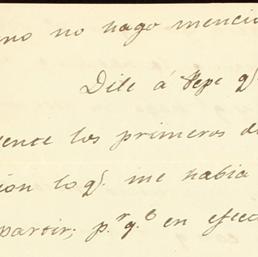 no no hago menció
Dile á Pepe q.
ente los primeros d
ión lo q. me habia
partir; p.r q.e en efec